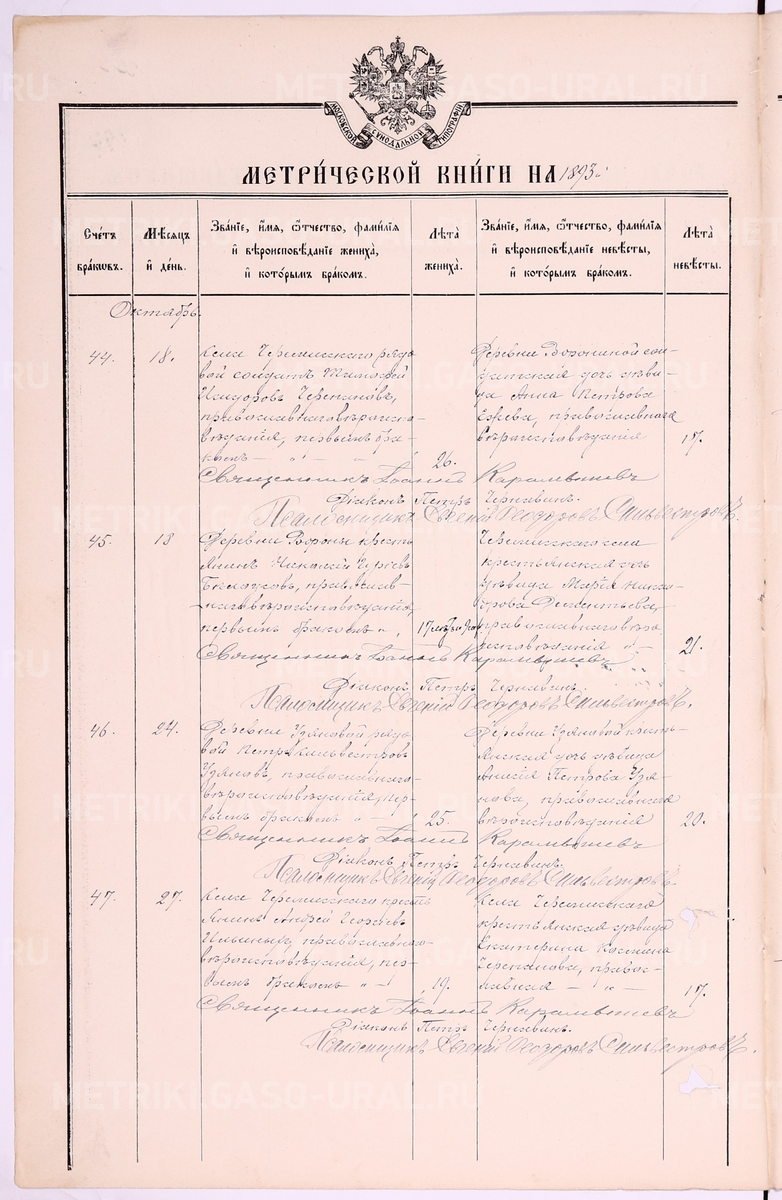 МОСКОВСКОЙ СѴНОДАЛЬНОЙ ТИПОГРАФІИ
МЕТРИ́ЧЕСКОЙ КНИ́ГИ НА 1893.
Сче́тъ бра́кωвъ.
Мѣ́сяцъ и҆ де́нь.
Зва́нїе, и҆́мя, ѻ҆́тчество, фами́лїя
и҆ вѣроисповѣ́данїе жениха̀,
и҆ кото́рымъ бра́комъ.
Лѣ́та жениха̀.
Зва́нїе, и҆́мя, ѻ҆́тчество, фами́лїя
и҆ вѣроисповѣ́данїе невѣ́сты,
и҆ кото́рымъ бра́комъ.
Лѣ́та невѣ́сты.
Октябрь.
44.
18.
Села Черемисскаго рядо-
вой солдатъ Тимофей
Исидоровъ Черепановъ,
православнаго вѣроиспо-
вѣданія, первымъ бра-
комъ
26.
Деревни Ворониной сол-
датская дочь дѣви-
ца Анна Петрова
православнаго
вѣроисповѣданія
17.
Священникъ Іоаннъ Карамышевъ
Діаконъ Петръ Чернавинъ.
Псаломщикъ Евгеній Ѳеодоровъ Сильвестровъ.
45.
18
Деревни кресть-
янинъ Николай
Бѣлоусовъ, православ-
наго вѣроисповѣданія,
первымъ бракомъ
17
Черемисскаго села
крестьянская дочь
дѣвица Марія
Дементьева,
православнаго вѣро
исповѣданія
21.
Священникъ Іоаннъ Карамышевъ
Діаконъ Петръ Чернавинъ.
Псаломщикъ Евгеній Ѳеодоровъ Сильвестровъ.
46.
24.
Деревни рядо-
вой Петръ Сильвестровъ
православнаго
вѣроисповѣданія, пер-
вымъ бракомъ
25.
Деревни кресть-
янская дочь дѣвица
Петрова
православнаго
вѣроисповѣданія
20.
Священникъ Іоаннъ Карамышевъ
Діаконъ Петръ Чернавинъ.
Псаломщикъ Евгеній Ѳеодоровъ Сильвестровъ.
47.
27.
Села Черемисскаго кресть
янинъ Андрей Георгіевъ
Ильиныхъ, православнаго
вѣроисповѣданія, пер-
вымъ бракомъ
19.
Села Черемисскаго
крестьянская дѣвица
Екатерина Космина
Черепанова, правос-
лавная
17.
Священникъ Іоаннъ Карамышевъ
Діаконъ Петръ Чернавинъ.
Псаломщикъ Евгеній Ѳеодоровъ Сильвестровъ.
METRIKI.GASO-URAL.RU